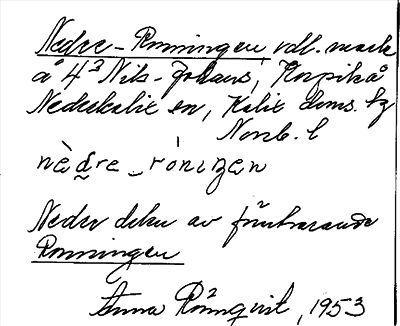 Nedre-Ronningen vdl. mark
å 4³ Nils-Johans, Korpikå
Nederkalix sn, Kalix doms. hg
Norrb. l
nèdre_ròniŋen
Nedre delen av förutvarande
Ronningen
Anna Rönnqvist, 1953